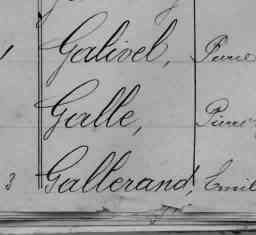 Galivel, Pierre
Galle, Pierre
3 Gallerand, Emil